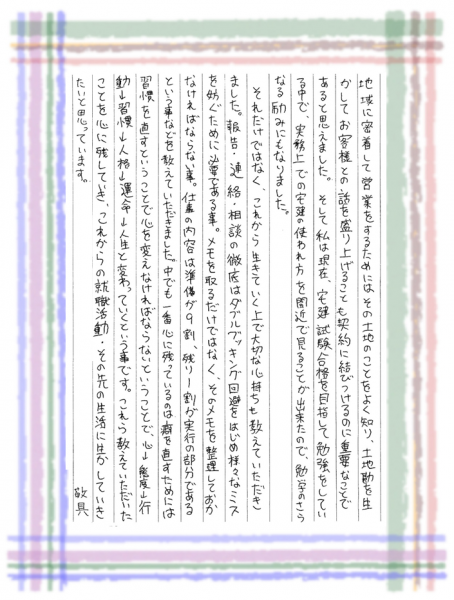 地域に密着して営業をするためにはその土地のことをよく知り、土地勘を生
かしてお客様との話を盛り上げることも契約に結びつけるのに重要なことで
あると思えました。そして私は現在、宅建試験合格を目指して勉強をしてい
る中で、実務上での宅建の使われ方を間近で見ることが出来たので、勉学のさら
なる励みにもなりました。
それだけではなく、これから生きていく上で大切な心持ちも教えていただき
ました。報告・連絡・相談の徹底はダブルブッキング回避をはじめ様々なミス
を防ぐために必要である事。メモを取るだけではなく、そのメモを整理しておか
なければならない事。仕事の内容は準備が9割、残り1割が実行の部分である
という事などを教えていただきました。中でも一番心に残っているのは癖を直すためには
習慣を直すということで心を変えなければならないということで、心→態度→行
動→習慣→人格→運命→人生と変わっていくという事です。これら教えていただいた
ことを心に残していき、これからの就職活動・その先の生活に生かしていき
たいと思っています。
敬具